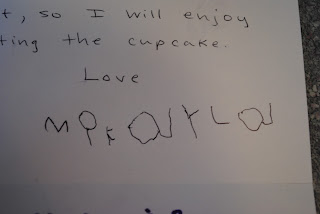 t, so I will enjoy
ting the cupcake.
Love